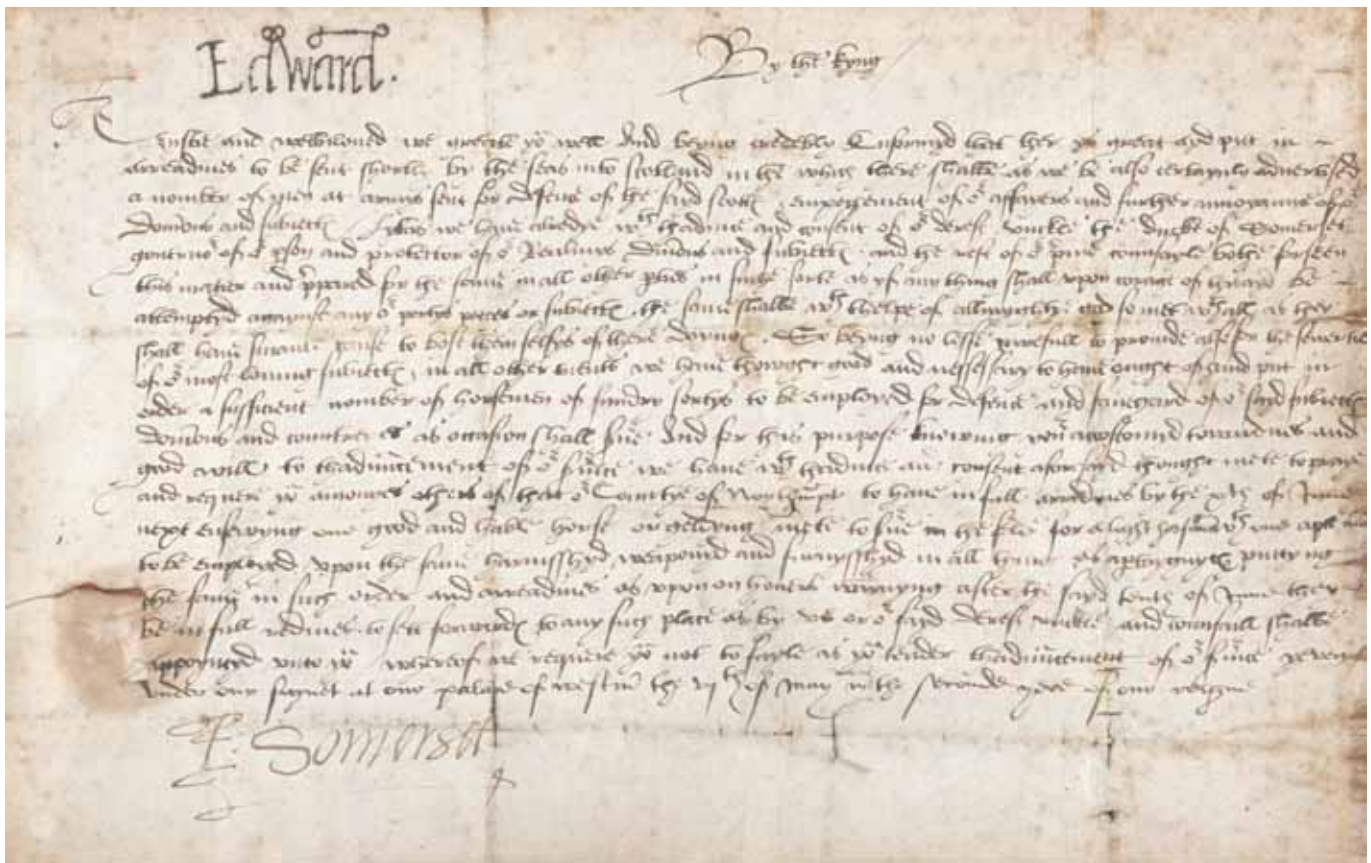 Edward.
By the kyng
Trustie and welbiloved we greete yow well And beyng credebly Enformyd that ther ys great ayd put in
arreadines to be sent shortly by the seas into Scotland in the which there shalbe as we be also certaynly advertised
a number of men at armes sent for defence of the said Scotts of oʳ affayres and further annoyance of oʳ
Domynions and subiects we have alredye wᵗʰ thadvise and consent of oʳ derest uncle the Duke of Somerset
governoʳ of oʳ pson and protector of oʳ Realmes Dmions and Subiects and the rest of oʳ privie counsayle bothe forseen
this matter and ppared for the same in all other ptes in suche sorte as yf any thing shall upon corage of thayd be
attemptyd against any oʳ portys peces or subiects the same shalbe wᵗʰ thelpe of allmyghtie god so met wᵗʰall as they
shall have smaule cause to bost them selfes of there doyngs. So beyng no lesse carefull to provide also for the suertie
of oʳ most loving subiects in all other events we have thowght good and nessessary to have owght of hand put in
order a sufficient nomber of horsemen of sundry sortys to be employed for defence and savegard of oʳ said subiects
domions and countrees as occasion shall sʳve And for this purpose knowing yoʳ accostomid towardnes and
good will to thadvancement of oʳ sʳvice we have wᵗʰ thadvice and consent aforsaid thought mete to praye
and requere yow amonges others of that oʳ Countye of Northampt to have in full arredines by the xth of June
next ensewyng one good and hable horse or geldyng mete to sʳve in the for a light horsman wᵗʰ one apte man
to be employed upon the same harnisshyd weaponid and furnysshyd in all thinges as apteynyth puttyng
the same in such order and arreadines as upon on howers warnyng after the said tenth of June they
be in full redines to sett forwards to any such place as by us or oʳ said derest uncle and counsaill shalbe
appoynted unto yow whereof we requere yow not to fayle as yow tender thadvancement of oʳ sʳvice yeven
under our signet at our palace of westmʳ the vjth of May in the seconde yere of our reigne
E. Somerset